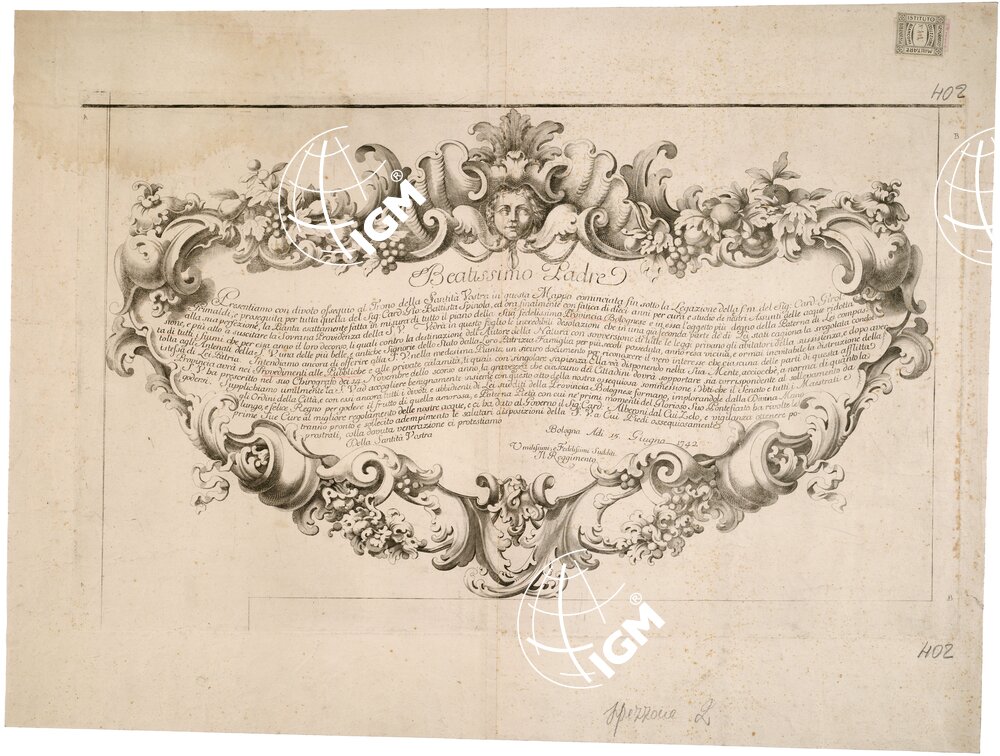 ISTITUTO
MILITARE
402
A
B
IGM®
Beatissimo Padre
Presentiamo con divoto ossequio al Trono della Santità Vostra in questa Mappa cominciata fin sotto la Legazione della fu: del Sig. Card. Girol.
Grimaldi, e proseguita per tutta quella del Sig. Card. Gio: Battista Spinola, ed ora finalmente con fatica di dieci anni per cura e studio de nostri Assunti delle acque ridotta
alla sua perfezione, la Pianta esattamente fatta in misura di tutto il piano della Sua fedelissima Provincia Bolognese e in essa l'oggetto più degno della Paterna di Lei compas-
sione, e più atto a muovere la sovrana Providenza della S. V. Vedrà in questo foglio le incredibili desolazioni che in una già feconda parte de' di Lei stati cagiona la sregolata condot-
ta di tutti i fiumi che per essa anno il loro decorso, li quali contro la destinazione dell'Autore della Natura con sovversione di tutte le leggi privano gli abitatori della sussistenza, dopo aver
tolta agli Antenati della S. V. una delle più belle e antiche Signorie dello Stato dalla Loro Patrizia Famiglia per più secoli posseduta, ambi essa vicina, e ormai inevitabile la distruzione della
stessa di Lei Patria. Intendiamo ancora di offerire alla S. V. nella medesima Pianta, un sicuro documento per riconoscere il vero interesse, che ciascuna delle parti di questa afflitta
Provincia avrà ne' Provedimenti alle Pubbliche e alle private calamità, li quali con singolare sapienza Ella và disponendo nella Sua Mente, acciocchè, a norma di quanto la
S. V. ha prescritto nel suo Chirografo dei 24 Novembre dello scorso anno la gravezza che ciascuno dei Cittadini dovrà sopportare sia corrispondente al sollevamento da
godersi. Supplichiamo umilmente la S. V. ad accogliere benignamente insieme con questo atto della nostra ossequiosa sommessione i Voti che il Senato e tutti i Maestrati e
gli Ordini della Città, e con essi ancora tutti i divoti, e ubbidienti di Lei sudditi della Provincia Bolognese formano, implorandole dalla Divina Mano
lungo, e felice Regno per godere il frutto di quella amorosa, e Paterna Pietà con cui ne' primi momenti del Glorioso Suo Pontificato ha rivolte le
prime Sue Cure al migliore regolamento delle nostre acque, e ci ha dato al Governo il Sig. Card. Alberoni dal Cui Zelo, e vigilanza ottenere po-
tranno pronto e sollecito adempimento le salutari disposizioni della S. V. a Cui Piedi ossequiosamente
prostrati, colla dovuta venerazione ci protestiamo
Della Santità Vostra
Bologna Adi 15 Giugno 1742
Umilissimi, e Fedelissimi Sudditi
Il Reggimento
B
IGM®
402
Spezzone 2